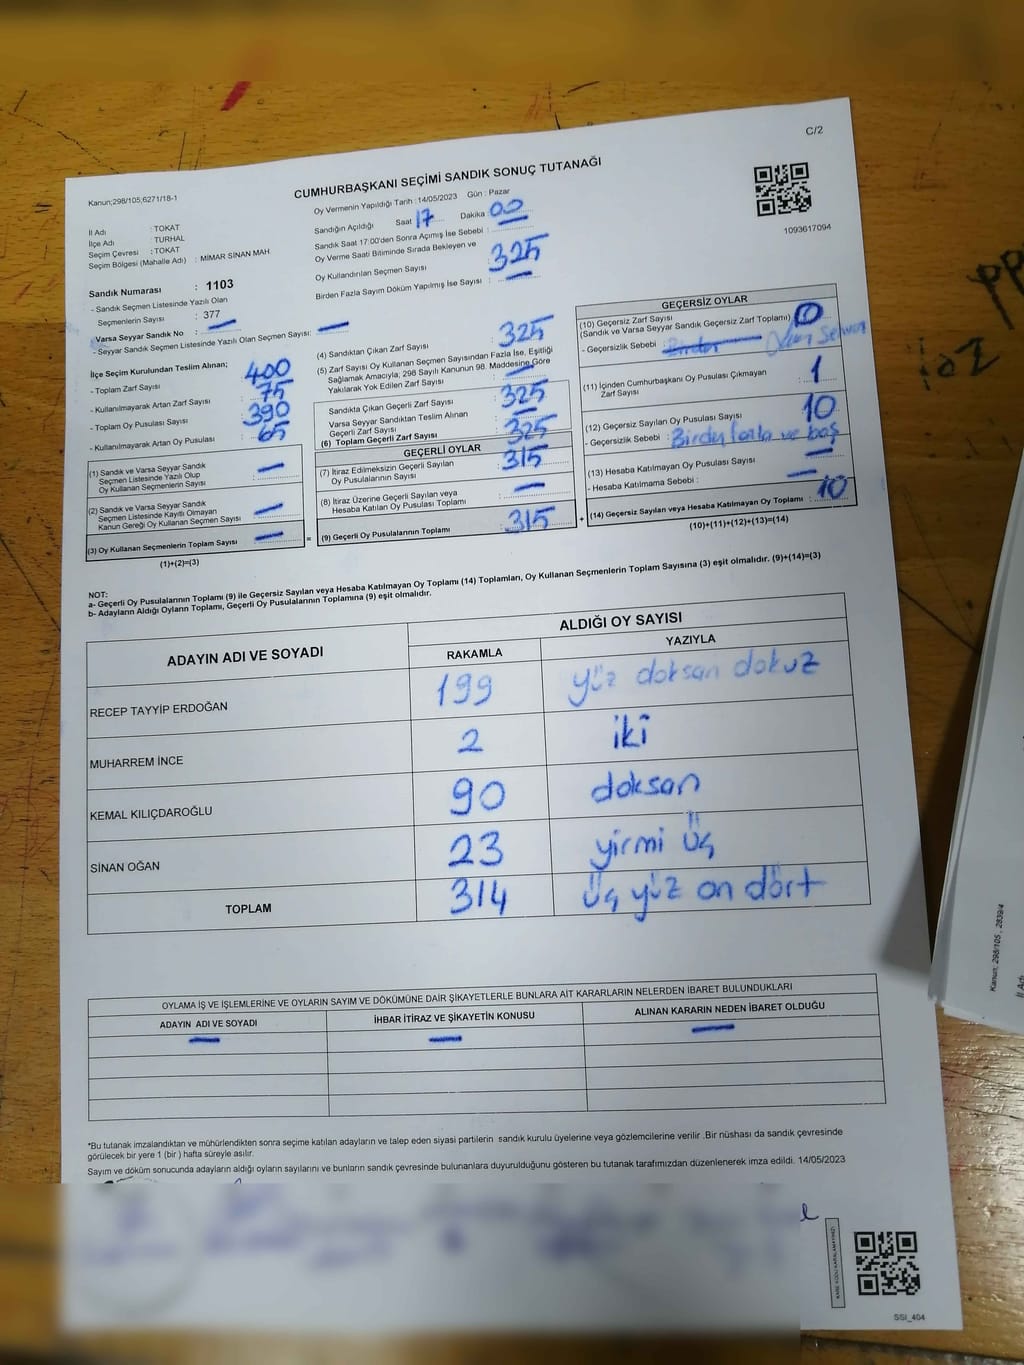 C/2
Kanun;298/105;6271/18-1
CUMHURBAŞKANI SEÇİMİ SANDIK SONUÇ TUTANAĞI
Oy Vermenin Yapıldığı Tarih :14/05/2023 Gün : Pazar
İl Adı : TOKAT
İlçe Adı : TURHAL
Seçim Çevresi : TOKAT
Seçim Bölgesi (Mahalle Adı) : MİMAR SİNAN MAH
Sandık Numarası : 1103
- Sandık Seçmen Listesinde Yazılı Olan
Seçmenlerin Sayısı : 377
Varsa Seyyar Sandık No : —
- Seyyar Sandık Seçmen Listesinde Yazılı Olan Seçmen Sayısı: —
Sandığın Açıldığı Saat 17 Dakika : 00
Sandık Saat 17:00'den Sonra Açımış İse Sebebi : —
Oy Verme Saati Bitiminde Sırada Bekleyen ve
Oy Kullandırılan Seçmen Sayısı : 325
Birden Fazla Sayım Döküm Yapılmış İse Sayısı : —
1093617094
İlçe Seçim Kurulundan Teslim Alınan;
- Toplam Zarf Sayısı : 400
- Kullanılmayarak Artan Zarf Sayısı : 75
- Toplam Oy Pusulası Sayısı : 390
- Kullanılmayarak Artan Oy Pusulası : 65
(1) Sandık ve Varsa Seyyar Sandık
Seçmen Listesinde Yazılı Olup
Oy Kullanan Seçmenlerin Sayısı : —
(2) Sandık ve Varsa Seyyar Sandık
Seçmen Listesinde Kayıtlı Olmayan
Kanun Gereği Oy Kullanan Seçmen Sayısı : —
(3) Oy Kullanan Seçmenlerin Toplam Sayısı : —
(1)+(2)=(3)
=
(4) Sandıktan Çıkan Zarf Sayısı : 325
(5) Zarf Sayısı Oy Kullanan Seçmen Sayısından Fazla İse, Eşitliği
Sağlamak Amacıyla, 298 Sayılı Kanunun 98. Maddesine Göre
Yakılarak Yok Edilen Zarf Sayısı : —
Sandıkta Çıkan Geçerli Zarf Sayısı : 325
Varsa Seyyar Sandıktan Teslim Alınan
Geçerli Zarf Sayısı : —
(6) Toplam Geçerli Zarf Sayısı : 325
GEÇERLİ OYLAR
(7) İtiraz Edilmeksizin Geçerli Sayılan
Oy Pusulalarının Sayısı : 315
(8) İtiraz Üzerine Geçerli Sayılan veya
Hesaba Katılan Oy Pusulası Toplamı : —
(9) Geçerli Oy Pusulalarının Toplamı : 315
+
GEÇERSİZ OYLAR
(10) Geçersiz Zarf Sayısı
(Sandık ve Varsa Seyyar Sandık Geçersiz Zarf Toplamı) : 0
- Geçersizlik Sebebi :
(11) İçinden Cumhurbaşkanı Oy Pusulası Çıkmayan
Zarf Sayısı : 1
(12) Geçersiz Sayılan Oy Pusulası Sayısı : 10
- Geçersizlik Sebebi : Birden fazla ve boş
(13) Hesaba Katılmayan Oy Pusulası Sayısı : —
- Hesaba Katılmama Sebebi : —
(14) Geçersiz Sayılan veya Hesaba Katılmayan Oy Toplamı : 10
(10)+(11)+(12)+(13)=(14)
NOT:
a- Geçerli Oy Pusulalarının Toplamı (9) ile Geçersiz Sayılan veya Hesaba Katılmayan Oy Toplamı (14) Toplamları, Oy Kullanan Seçmenlerin Toplam Sayısına (3) eşit olmalıdır. (9)+(14)=(3)
b- Adayların Aldığı Oyların Toplamı, Geçerli Oy Pusulalarının Toplamına (9) eşit olmalıdır.
ADAYIN ADI VE SOYADI ALDIĞI OY SAYISI
RAKAMLA YAZIYLA
RECEP TAYYİP ERDOĞAN 199 yüz doksan dokuz
MUHARREM İNCE 2 iki
KEMAL KILIÇDAROĞLU 90 doksan
SİNAN OĞAN 23 yirmi üç
TOPLAM 314 Üç yüz on dört
OYLAMA İŞ VE İŞLEMLERİNE VE OYLARIN SAYIM VE DÖKÜMÜNE DAİR ŞİKAYETLERLE BUNLARA AİT KARARLARIN NELERDEN İBARET BULUNDUKLARI
ADAYIN ADI VE SOYADI İHBAR İTİRAZ VE ŞİKAYETİN KONUSU ALINAN KARARIN NEDEN İBARET OLDUĞU
— — —
*Bu tutanak imzalandıktan ve mühürlendikten sonra seçime katılan adayların ve talep eden siyasi partilerin sandık kurulu üyelerine veya gözlemcilerine verilir .Bir nüshası da sandık çevresinde
görülecek bir yere 1 (bir ) hafta süreyle asılır.
Sayım ve döküm sonucunda adayların aldığı oyların sayılarını ve bunların sandık çevresinde bulunanlara duyurulduğunu gösteren bu tutanak tarafımızdan düzenlenerek imza edildi. 14/05/2023
SSI_404
Kanun; 298/105 , 2839/4
İl Adı